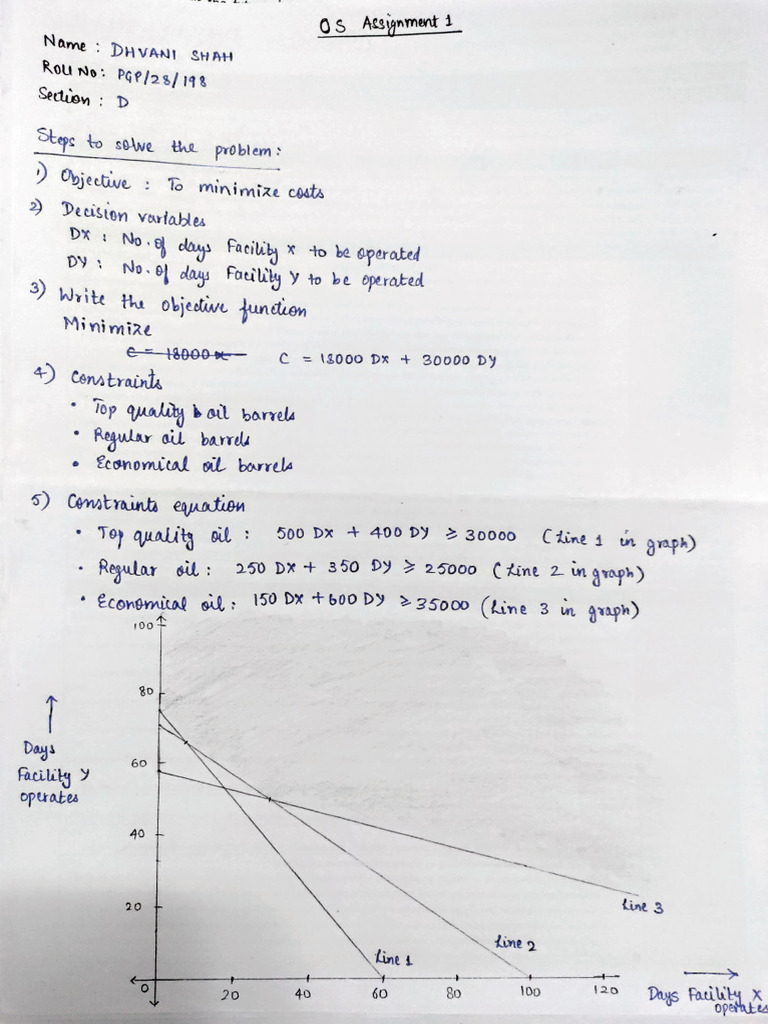 OS Assignment 1
Name : DHVANI SHAH
Roll No : PGP/28/198
Section : D
Steps to solve the problem :
1) Objective : To minimize costs
2) Decision variables
DX : No. of days Facility X to be operated
DY : No. of days Facility Y to be operated
3) Write the objective function
Minimize
C = 18000 x C = 18000 DX + 30000 DY
4) Constraints
• Top quality oil barrels
• Regular oil barrels
• Economical oil barrels
5) Constraints equation
• Top quality oil : 500 DX + 400 DY ≥ 30000 (Line 1 in graph)
• Regular oil : 250 DX + 350 DY ≥ 25000 (Line 2 in graph)
• Economical oil : 150 DX + 600 DY ≥ 35000 (Line 3 in graph)
100
80
60
40
20
0
Days
Facility Y
operates
Line 3
Line 2
Line 1
20 40 60 80 100 120
Days Facility X
operates